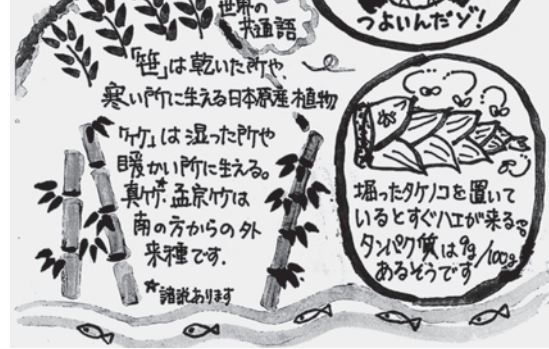 世界の
共通語
つよいんだゾ!
「笹」は乾いた所や、
寒い所に生える日本原産植物
「竹」は湿った所や
暖かい所に生える。
真竹*孟宗竹は
南の方からの外
来種です.
*諸説あります
掘ったタケノコを置いて
いるとすぐハエが来る
タンパク質は9g/100g
あるそうです